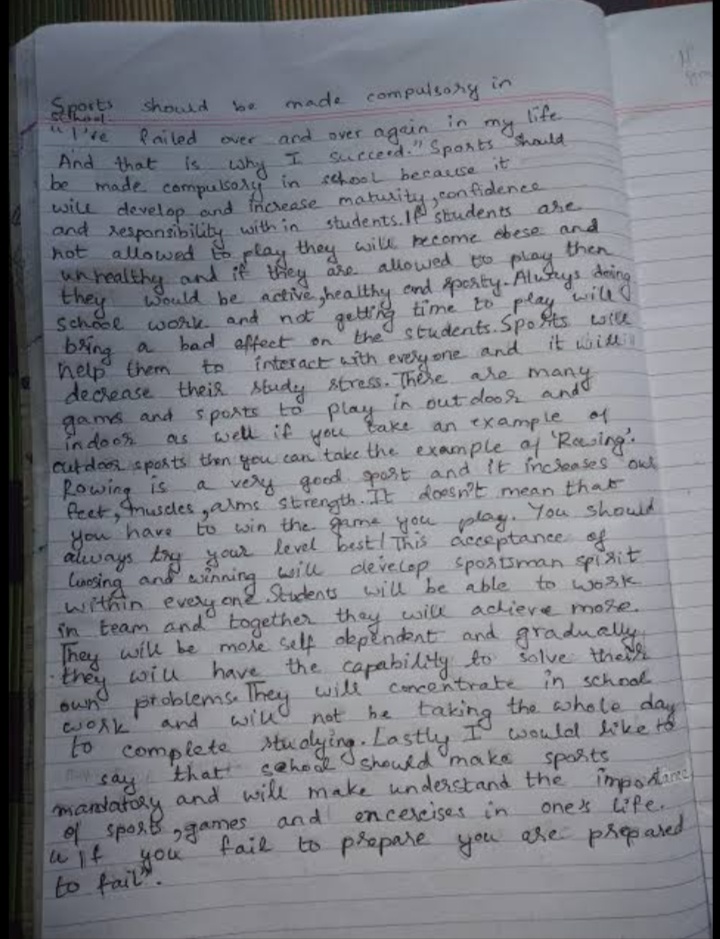 Sports should be made compulsory in
school.
"I've failed over and over again in my life
And that is why I succeed." Sports should
be made compulsory in school because it
will develop and increase maturity, confidence
and responsibility with in students. If students are
not allowed to play they will become obese and
unhealthy and if they are allowed to play then
they would be active, healthy and sporty. Always doing
school work and not getting time to play will
bring a bad effect on the students. Sports will
help them to interact with everyone and it will
decrease their study stress. There are many
games and sports to play in outdoor and
indoor as well if you take an example of
outdoor sports then you can take the example of 'Rowing'.
Rowing is a very good sport and it increases our
feet, muscles, arms strength. It doesn't mean that
you have to win the game you play. You should
always try your level best! This acceptance of
loosing and winning will develop sportsman spirit
within everyone. Students will be able to work
in team and together they will achieve more.
They will be more self dependent and gradually
they will have the capability to solve their
own problems. They will concentrate in school
work and will not be taking the whole day
to complete studying. Lastly I would like to
say that school should make sports
mandatory and will make understand the importance
of sports, games and encercises in one's life.
"If you fail to prepare you are prepared
to fail".